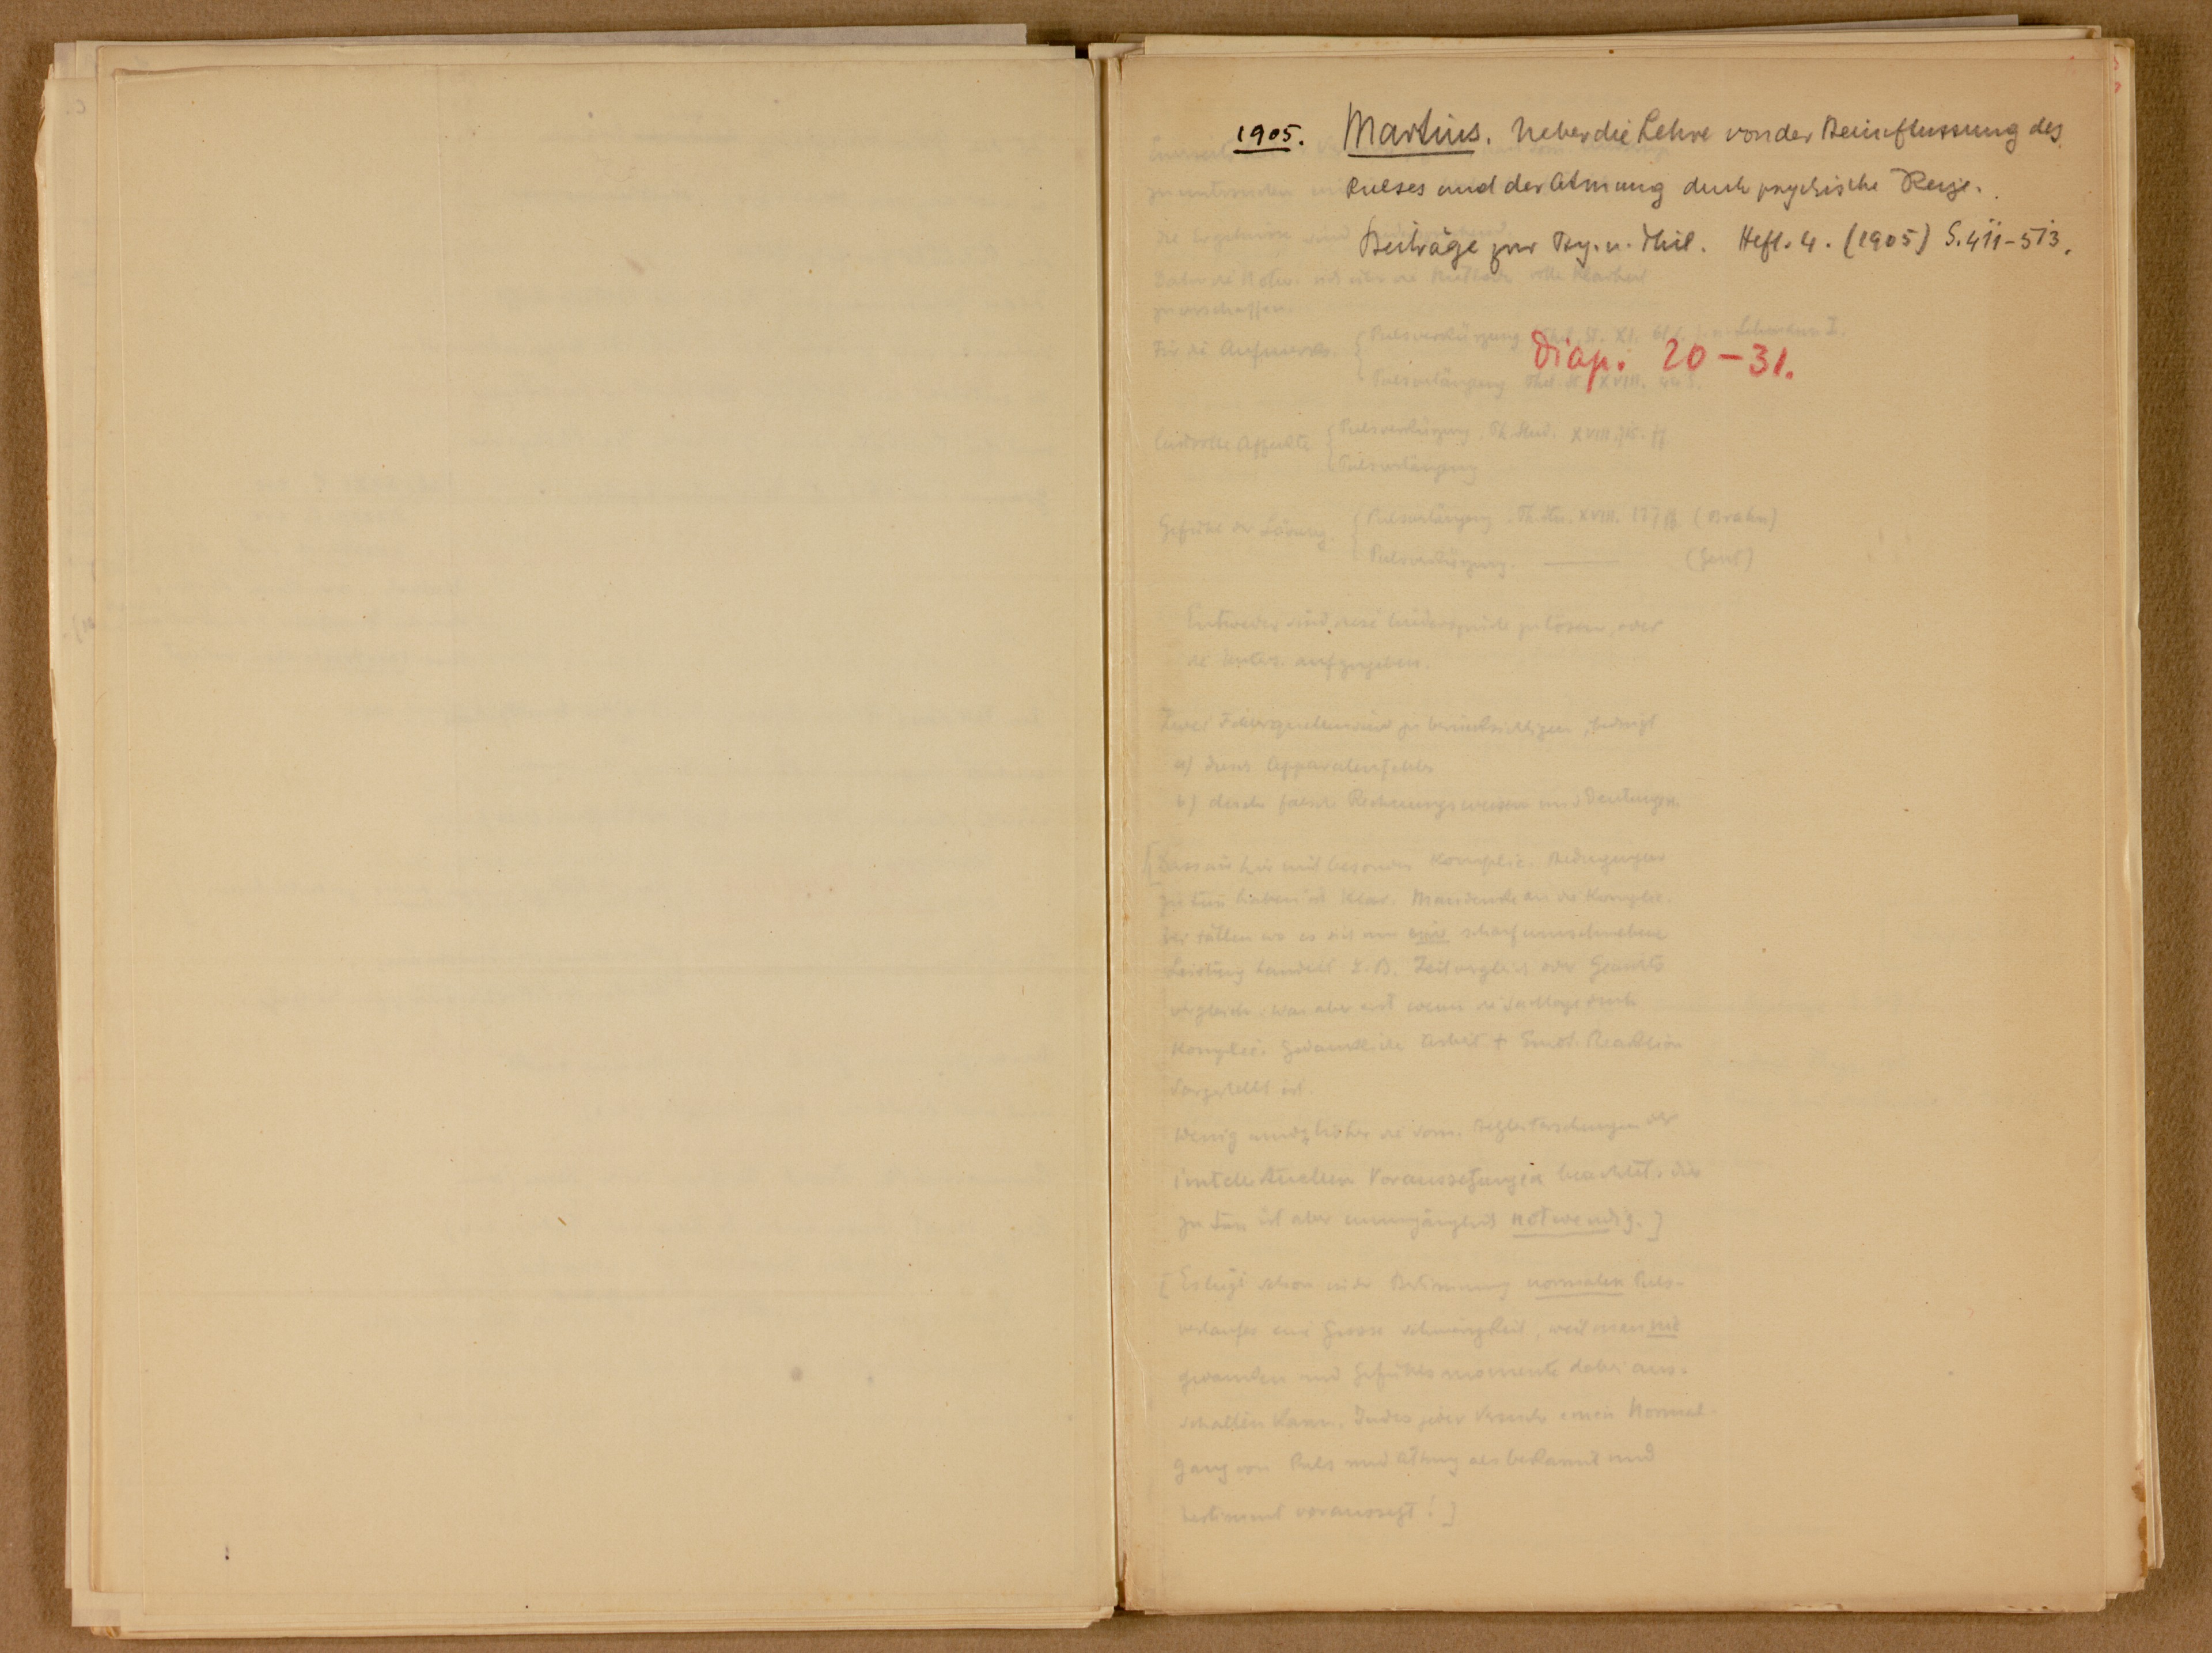 1905. Martius. Ueber die Lehre von der Beeinflussung des
Pulses und der Atmung durch psychische Reize.
Beiträge zur Psy. u. Phil. Heft. 4. (1905) S. 411-513.
Diap: 20-31.
die Ergebnisse sind
die Methode volle Klarheit
zu verschaffen.
Für die Aufmerks. Pulsverkürzung Lehmann I.
Pulsverlängerung XVIII.
lustvolle Affekte Pulsverkürzung. Ph. Stud. XVIII. 715. ff
Pulsverlängerung
Gefühl der Lösung. Pulsverlängerung. Ph. Stu. XVIII. 177 ff (Brahn)
Pulsverkürzung. — (Gent)
Entweder sind diese Widersprüche zu lösen, oder
die Unters. aufzugeben.
Zwei Fehlerquellen sind zu berücksichtigen, bedingt
a) durch Apparatenfehler
b) durch falsche Rechnungsweisen und Deutungen.
[Dass wir hier mit besonders Komplic. Bedingungen
zu tun haben ist klar. Man denke an die Komplic.
bei Fällen wo es sich um eine scharf umschriebene
Leistung handelt z.B. Zeitvergleich oder Gewichts
vergleich. Was aber erst wenn die Sachlage durch
Komplic. gedankliche Arbeit + Emot. Reaktion
dargestellt ist.
Wenig wurde bisher die Begleiterscheinungen der
intellektuellen Voraussetzungen beachtet. dies
zu tun ist aber unumgänglich notwendig.]
[Es liegt schon in der Bestimmung normalen Puls-
verlaufes eine grosse Schwierigkeit, weil man nie
gedanken und Gefühlsmomente dabei aus-
schalten kann. Indes jeder Versuch einen Normal-
gang von Puls und Atmung als bekannt und
bestimmt voraussetzt!]